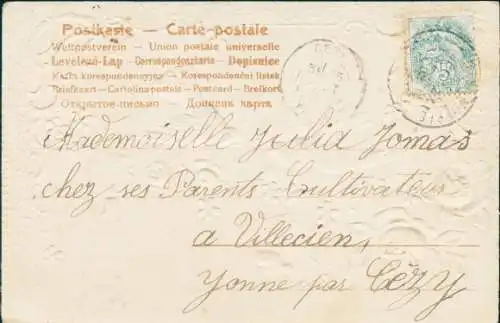 Postkarte — Carte postale
Weltpostverein — Union postale universelle
Levelező-Lap — Correspondenzkarte — Dopisnice
Karta korespondencyjna — Korespondenční lístek
Briefkaart — Cartolina postale — Postcard — Brefkort
Открытое письмо
5
Mademoiselle Julia Jomas
chez ses Parents Cultivateurs
a Villecien,
Yonne par Cézy